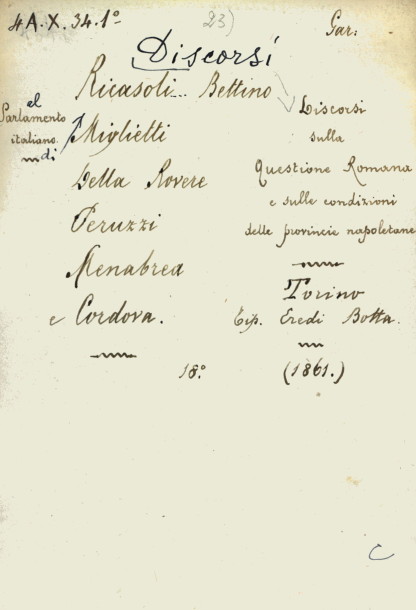 4A.X.34.1º
23)
Gar:
Discorsi
Ricasoli... Bettino
el
Parlamento
italiano
di
Miglietti
Della Rovere
Peruzzi
Menabrea
e Cordova.
Discorsi
sulla
Questione Romana
e sulle condizioni
delle provincie napoletane
Torino
Tip. Eredi Botta.
18º
(1861.)
C